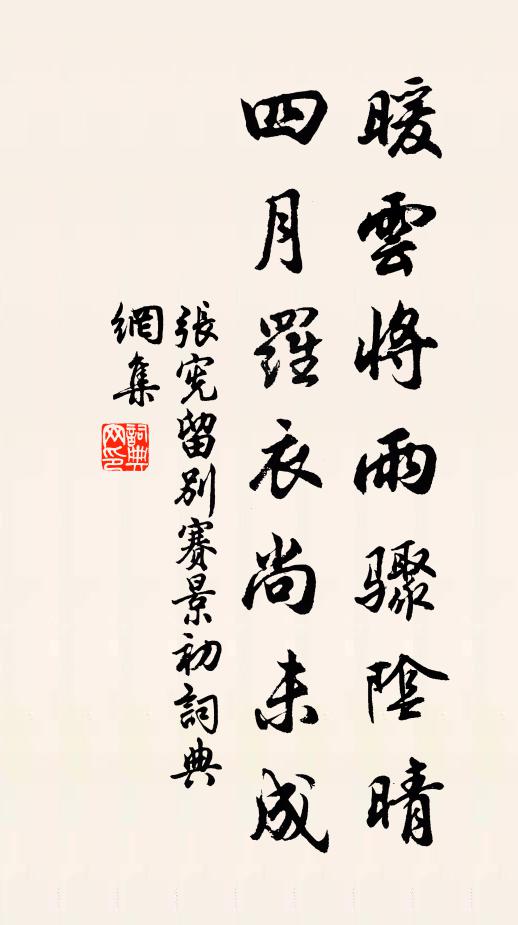 暖雲將雨驟陰晴
四月羅衣尚未成
張宪留別賽景初詞典
網集
詞典
网印